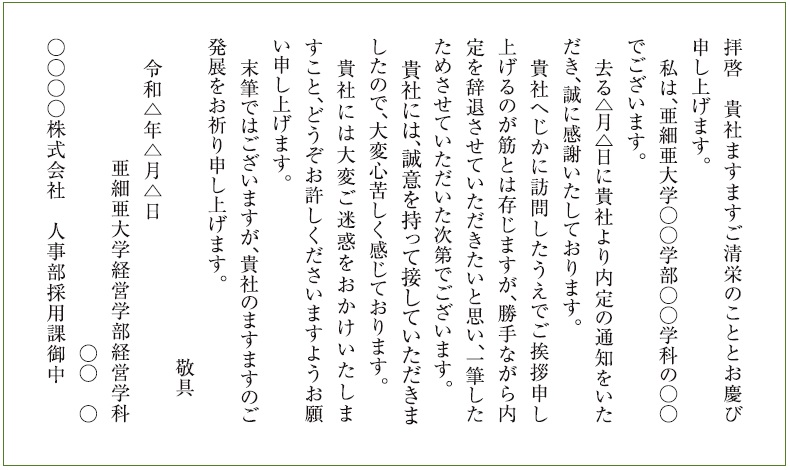 拝啓　貴社ますますご清栄のこととお慶び
申し上げます。
　私は、亜細亜大学〇〇学部〇〇学科の〇〇
でございます。
　去る△月△日に貴社より内定の通知をいた
だき、誠に感謝いたしております。
　貴社へじかに訪問したうえでご挨拶申し
上げるのが筋とは存じますが、勝手ながら内
定を辞退させていただきたいと思い、一筆した
ためさせていただいた次第でございます。
　貴社には、誠意を持って接していただきま
したので、大変心苦しく感じております。
　貴社には大変ご迷惑をおかけいたしま
すこと、どうぞお許しくださいますようお願
い申し上げます。
　末筆ではございますが、貴社のますますのご
発展をお祈り申し上げます。
敬具
令和△年△月△日
亜細亜大学経営学部経営学科
〇〇　〇
〇〇〇〇株式会社　人事部採用課御中